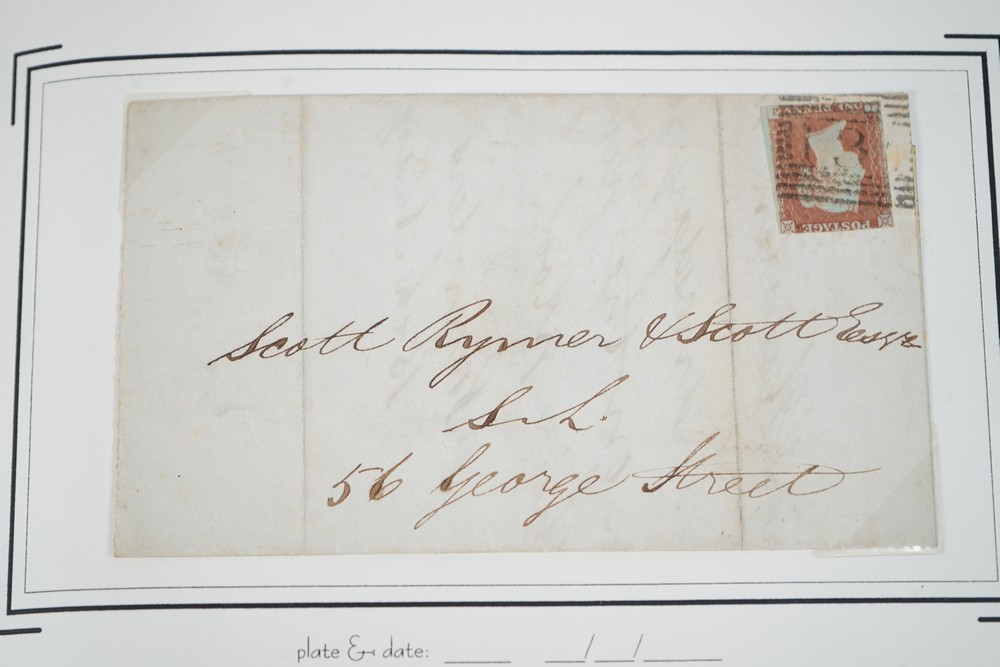 ONE PENNY
POSTAGE
Scott Rymer & Scott Esqrs
S.L.
56 George Street
plate & date: ____ __/__/____